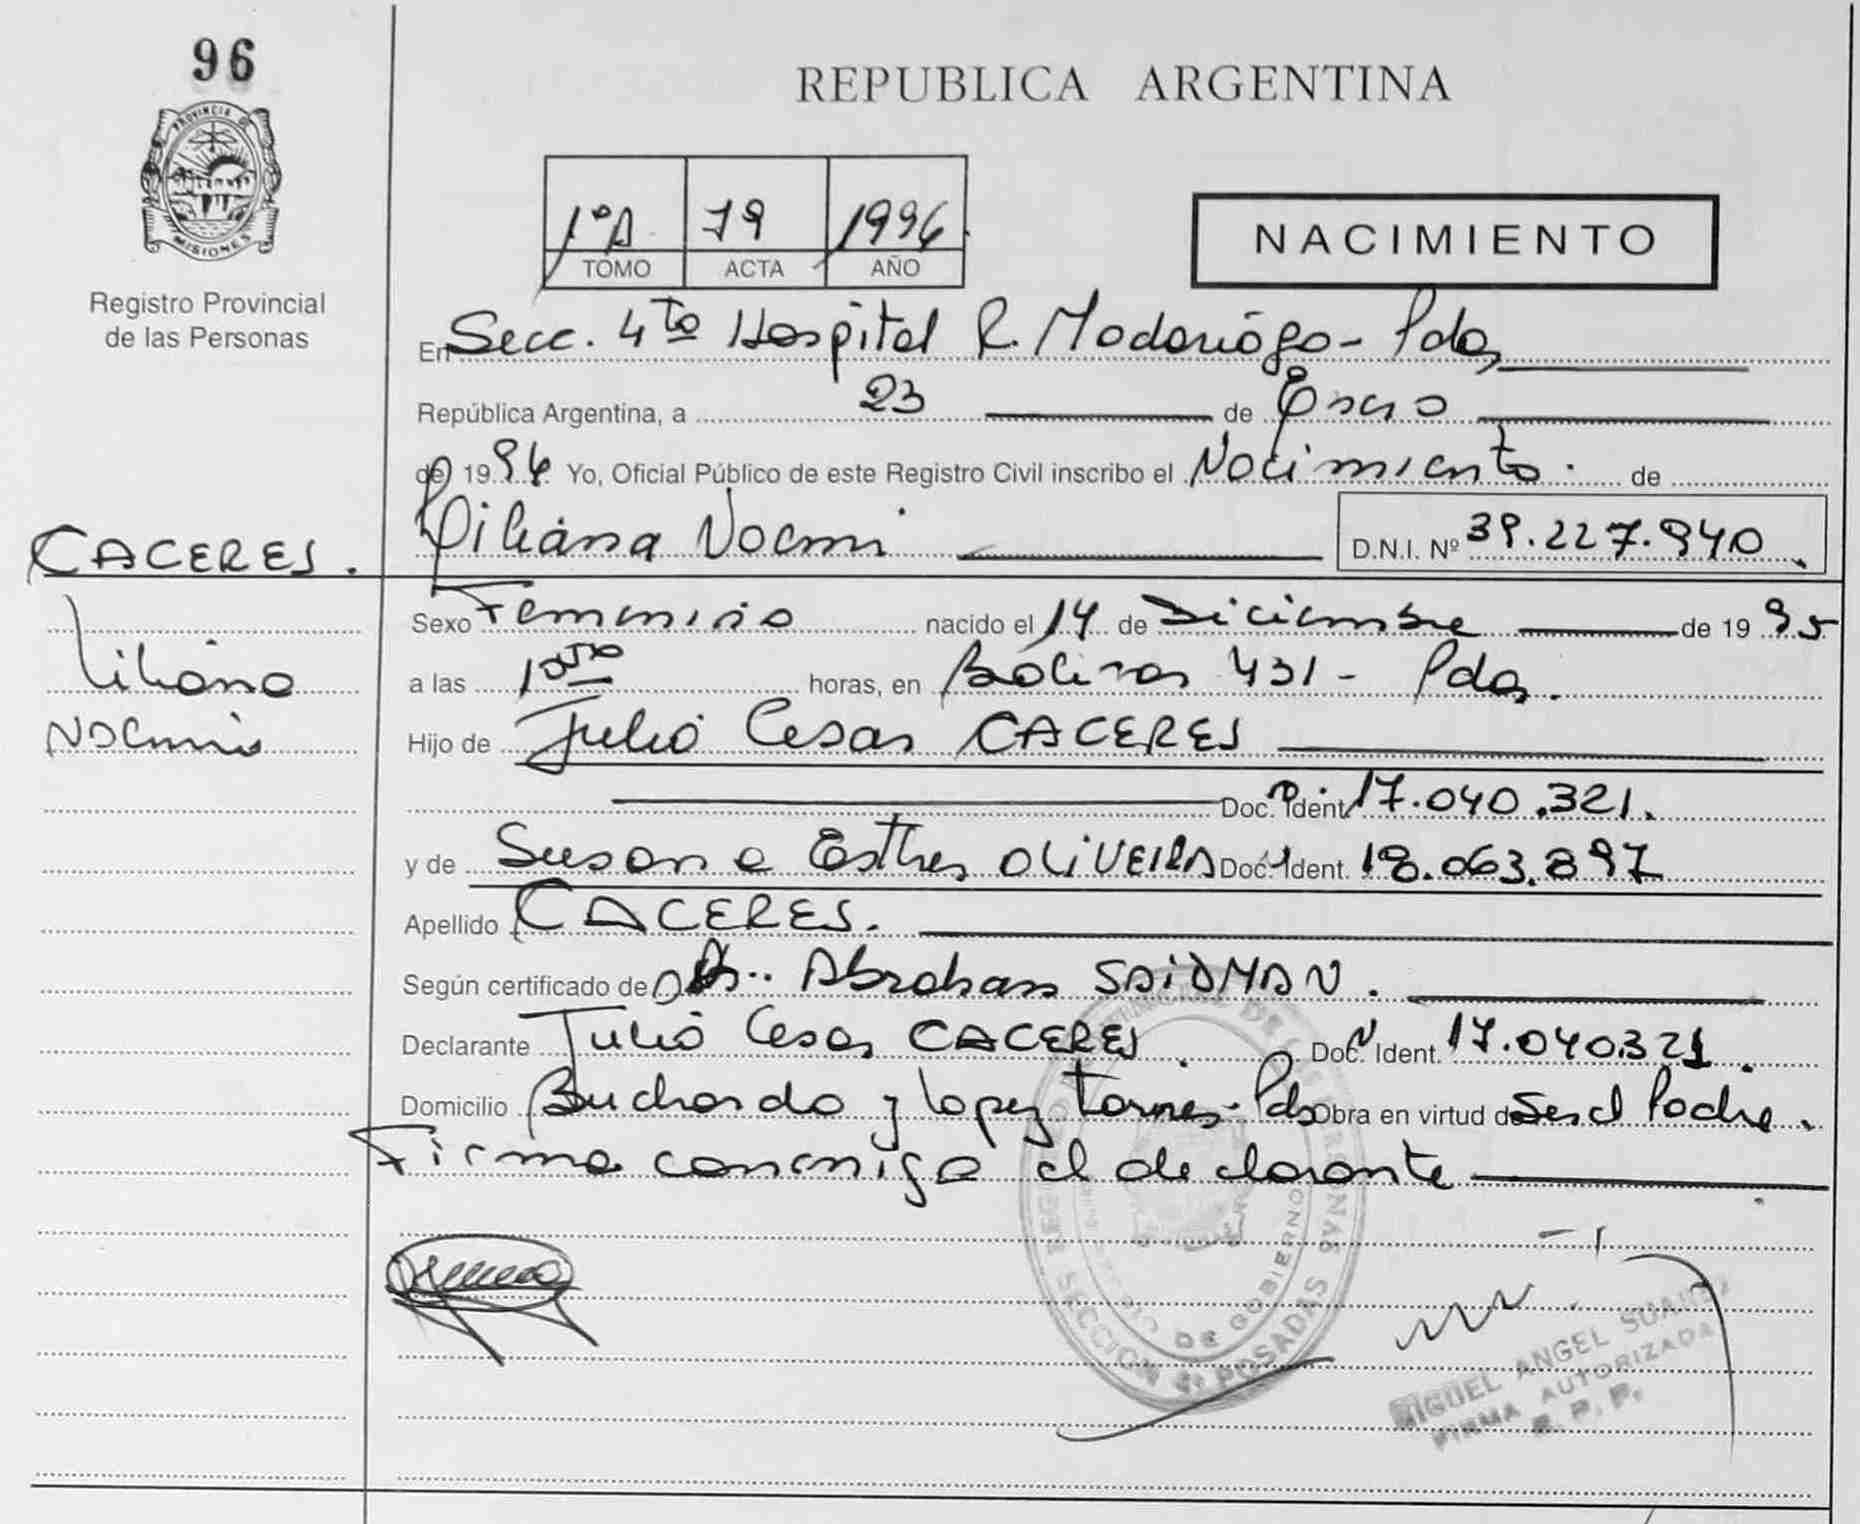 96
PROVINCIA DE
MISIONES
Registro Provincial
de las Personas
REPUBLICA ARGENTINA
1ºA 79 1996
TOMO ACTA AÑO
NACIMIENTO
En Secc. 4ta Hospital R. Madariaga - Pdas
República Argentina, a 23 de Enero
de 1996 Yo, Oficial Público de este Registro Civil inscribo el Nacimiento. de
Liliana Noemi D.N.I. Nº 39.227.940
CACERES.
Liliana
Noemi
Sexo Femenino nacido el 14 de Diciembre de 1995
a las 10:50 horas, en Bolivar 431 - Pdas.
Hijo de Julio Cesar CACERES
Doc. Ident. 17.040.321.
y de Susana Esther OLIVEIRA Doc. Ident. 18.063.897
Apellido CACERES.
Según certificado de Dr. Abraham SAIDMAN.
Declarante Julio Cesar CACERES. Doc. Ident. 17.040.321
Domicilio Buchardo y Lopez Torres - Pdas Obra en virtud de Ser el Padre.
Firma conmigo el declarante
SECCION 4ª POSADAS
DE GOBIERNO
MIGUEL ANGEL SUAREZ
FIRMA AUTORIZADA
R. P. P.